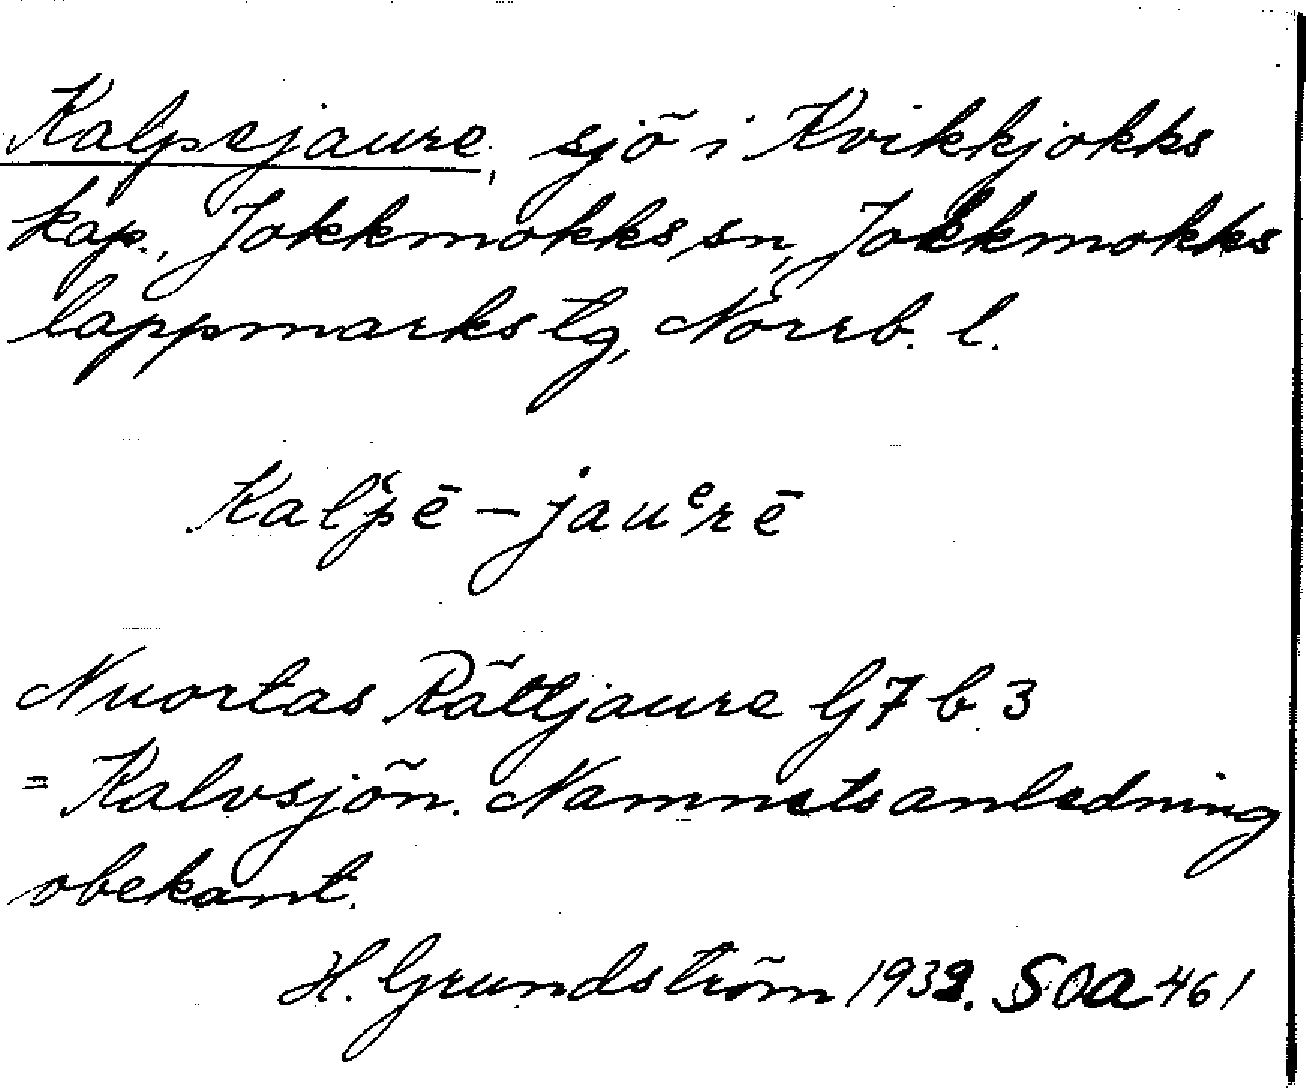 Kalpejaure, sjö i Kvikkjokks
kap., Jokkmokks sn, Jokkmokks
lappmarks tg, Norrb. l.
Kalˈpē – jauᵉrē
Nuortas Rättjaure G7 b 3
= Kalvsjön. Namnets anledning
obekant.
H. Grundström 1932. SOA 461